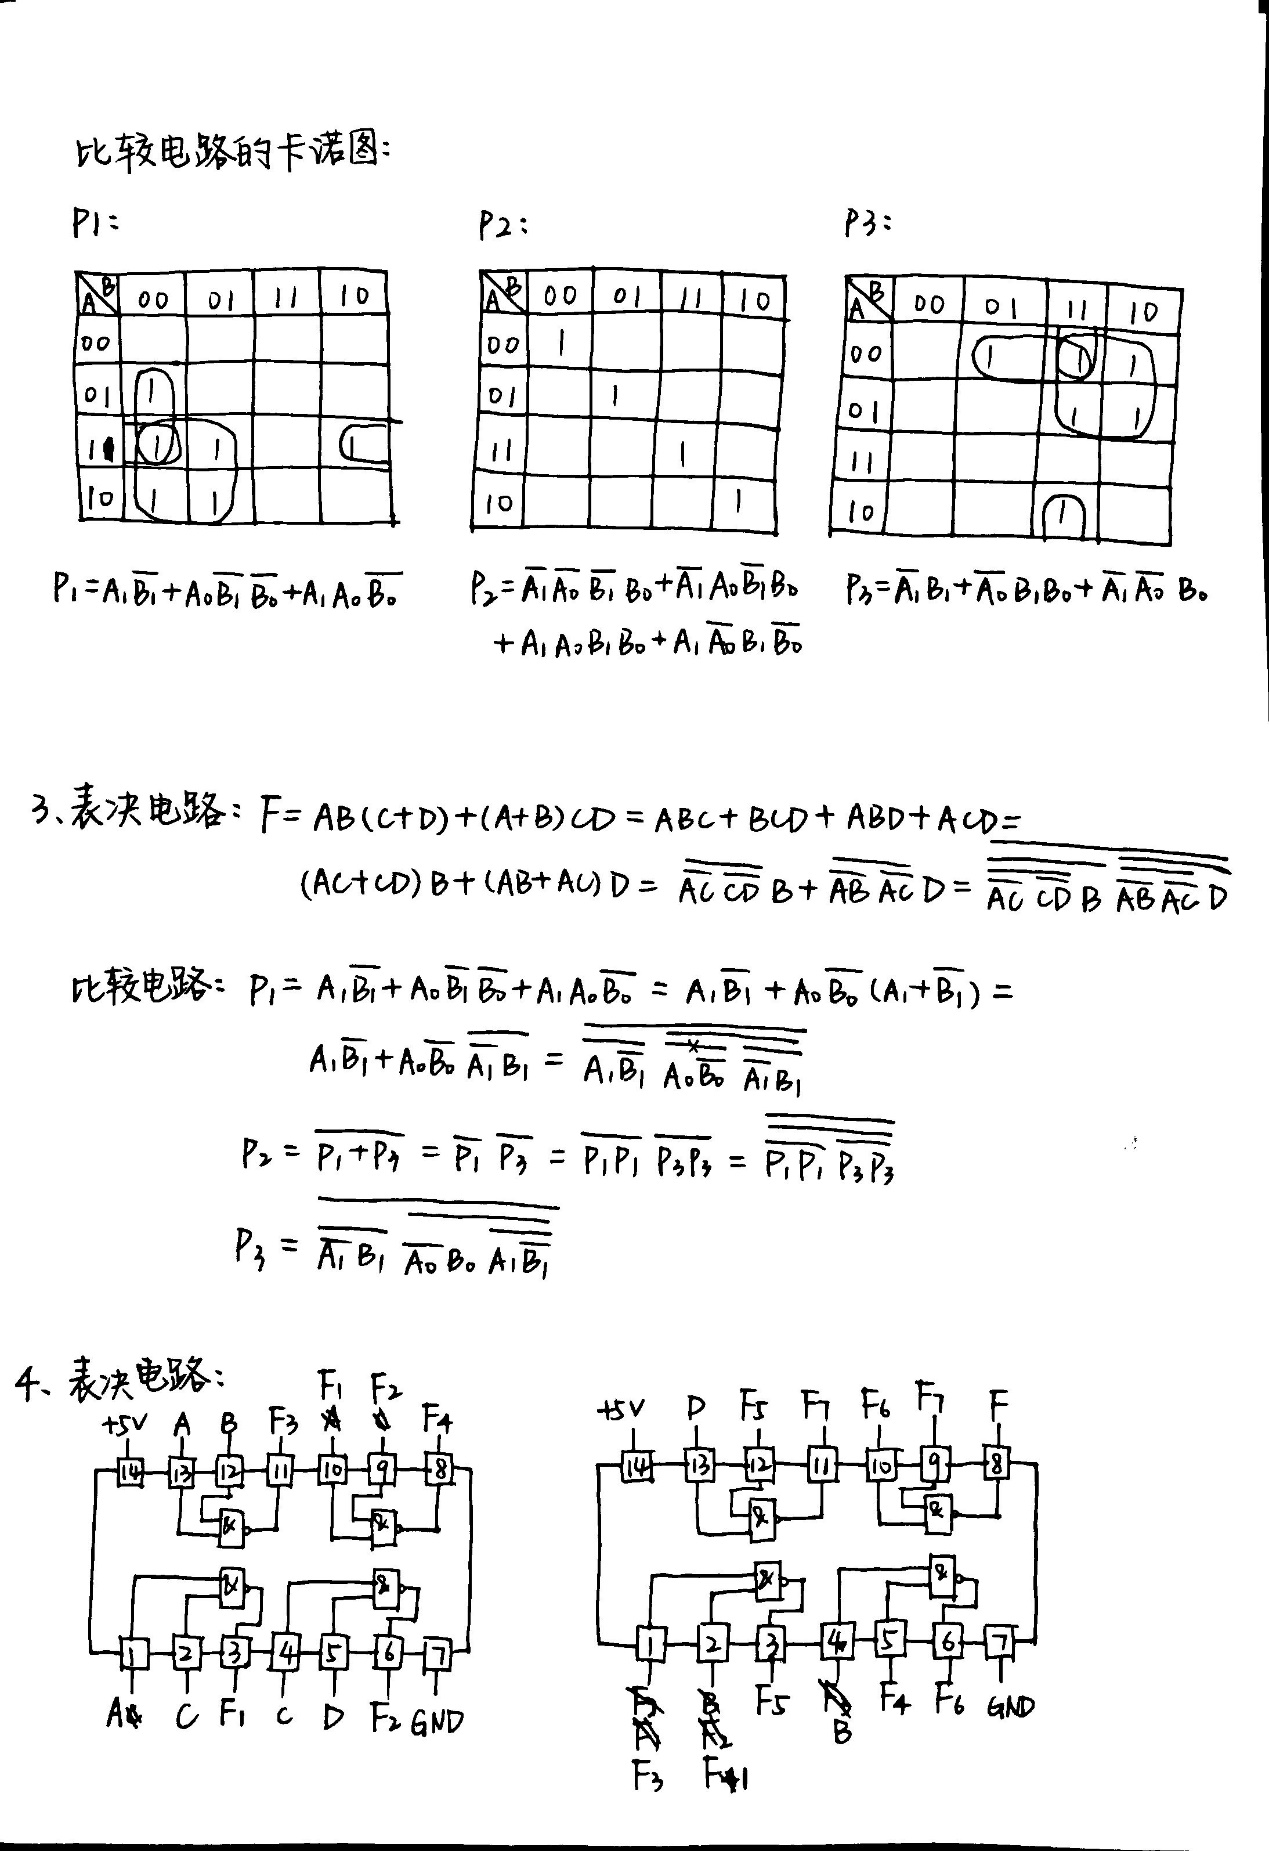 比较电路的卡诺图:
P1: P2: P3:
A B 00 01 11 10
00
01 1
11 1 1 1
10 1 1
A B 00 01 11 10
00 1
01 1
11 1
10 1
A B 00 01 11 10
00 1 1 1
01 1 1
11
10 1
P₁=A₁B̅₁+A₀B̅₁B̅₀+A₁A₀B̅₀
P₂=A̅₁A̅₀B̅₁B₀+A̅₁A₀B̅₁B₀
+A₁A₀B₁B₀+A₁A̅₀B₁B̅₀
P₃=A̅₁B₁+A̅₀B₁B₀+A̅₁A̅₀B₀
3、表决电路: F=AB(C+D)+(A+B)CD=ABC+BCD+ABD+ACD=
(AC+CD)B+(AB+AC)D= \overline{\overline{AC} \overline{CD}} B+\overline{\overline{AB} \overline{AC}} D= \overline{\overline{\overline{\overline{AC} \overline{CD}} B} \overline{\overline{\overline{AB} \overline{AC}} D}}
比较电路: P₁= A₁B̅₁+A₀B̅₁B̅₀+A₁A₀B̅₀ = A₁B̅₁+A₀B̅₀(A₁+B̅₁) =
A₁B̅₁+A₀B̅₀ \overline{A̅₁B₁} = \overline{\overline{A₁B̅₁} \overline{A₀B̅₀ \overline{A̅₁B₁}}}
P₂= \overline{P₁+P₃} = P̅₁ P̅₃ = \overline{P₁P₁} \overline{P₃P₃} = \overline{\overline{\overline{P₁P₁} \overline{P₃P₃}}}
P₃= \overline{\overline{A̅₁B₁} \overline{A̅₀B₀ \overline{A₁B̅₁}}}
4、表决电路:
F₁ F₂
+5V A B F3 F4
14 13 12 11 10 9 8
& &
& &
1 2 3 4 5 6 7
A C F1 C D F2 GND
+5V D F5 F7 F6 F7 F
14 13 12 11 10 9 8
& &
& &
1 2 3 4 5 6 7
F5 F4 F6 GND
B
F3 F1